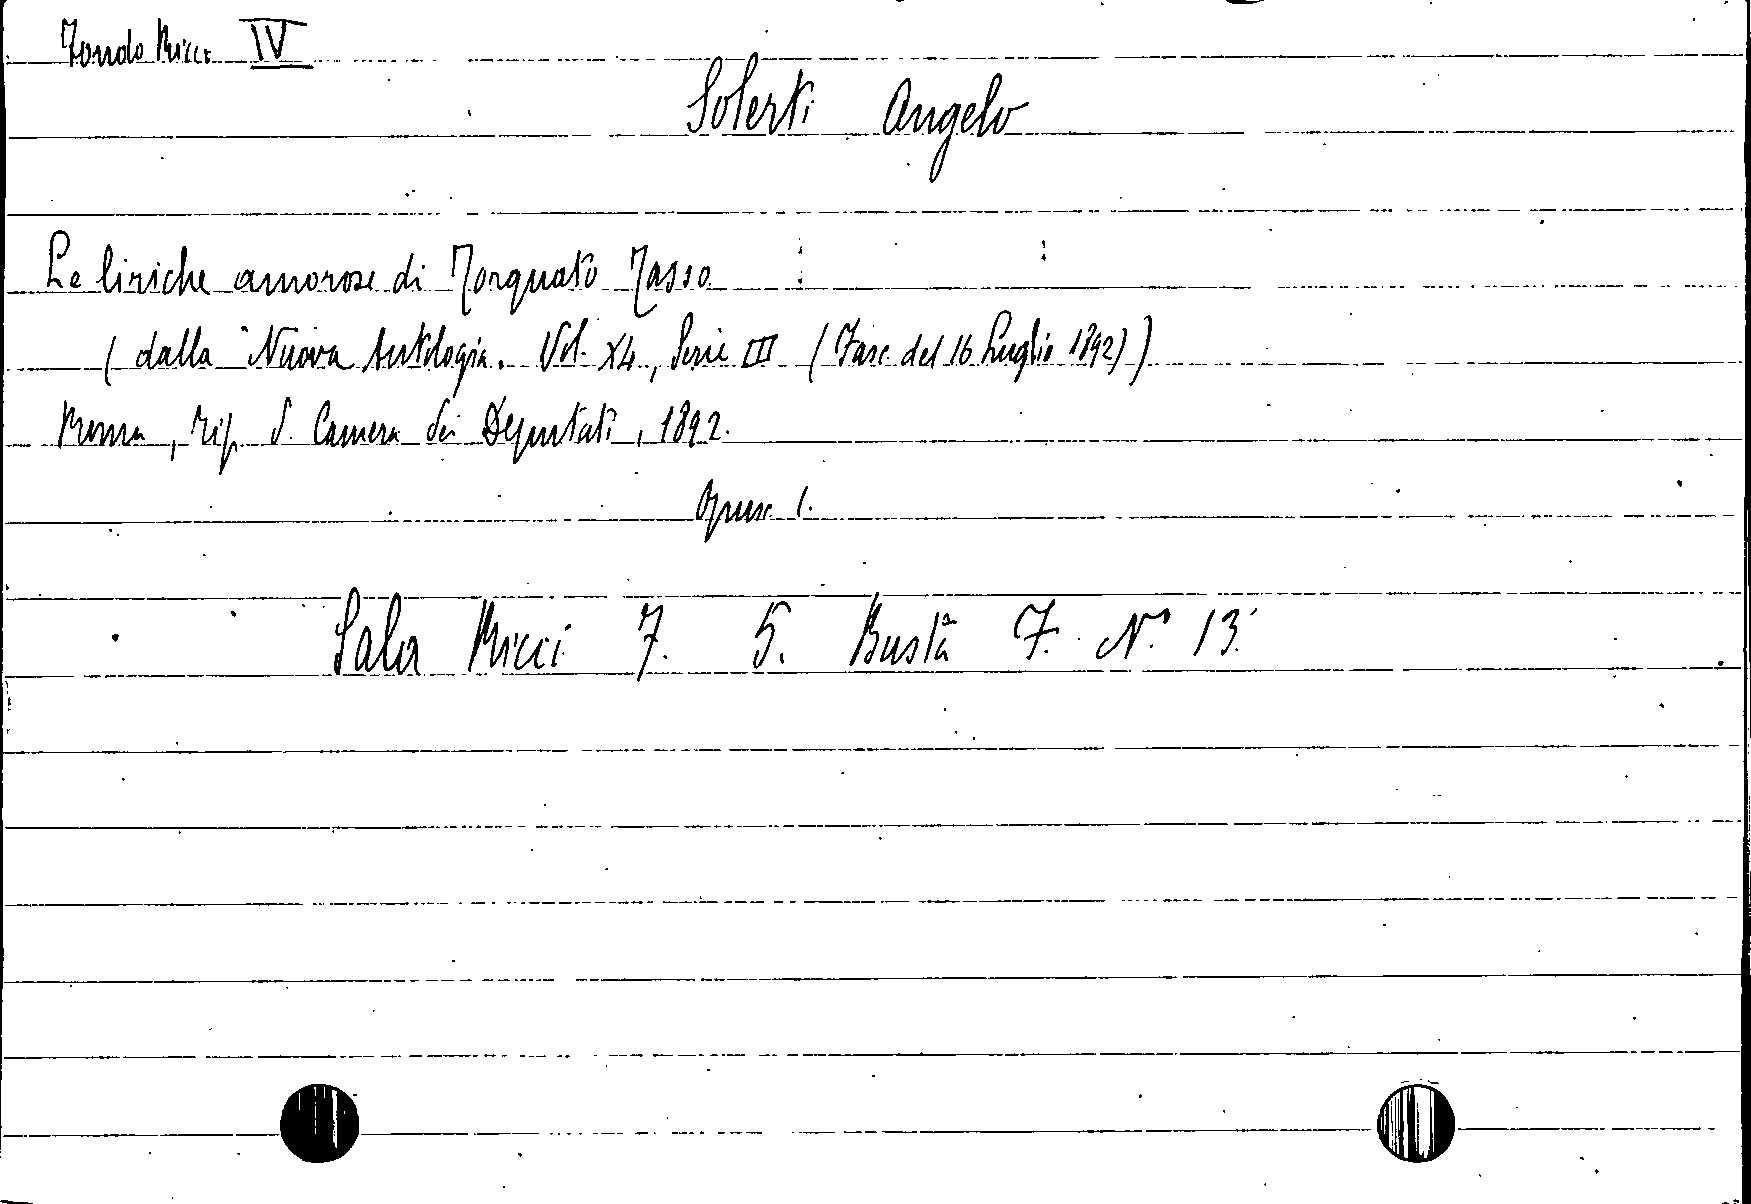 Fondo Ricci IV
Solerti Angelo
Le liriche amorose di Torquato Tasso
(dalla Nuova Antologia. Vol. XL, Serie III (Fasc. del 16 Luglio 1892))
Roma, Tip. d. Camera dei Deputati, 1892.
Opusc. 1.
Sala Ricci 7. 5. Busta 7. N.° 13.